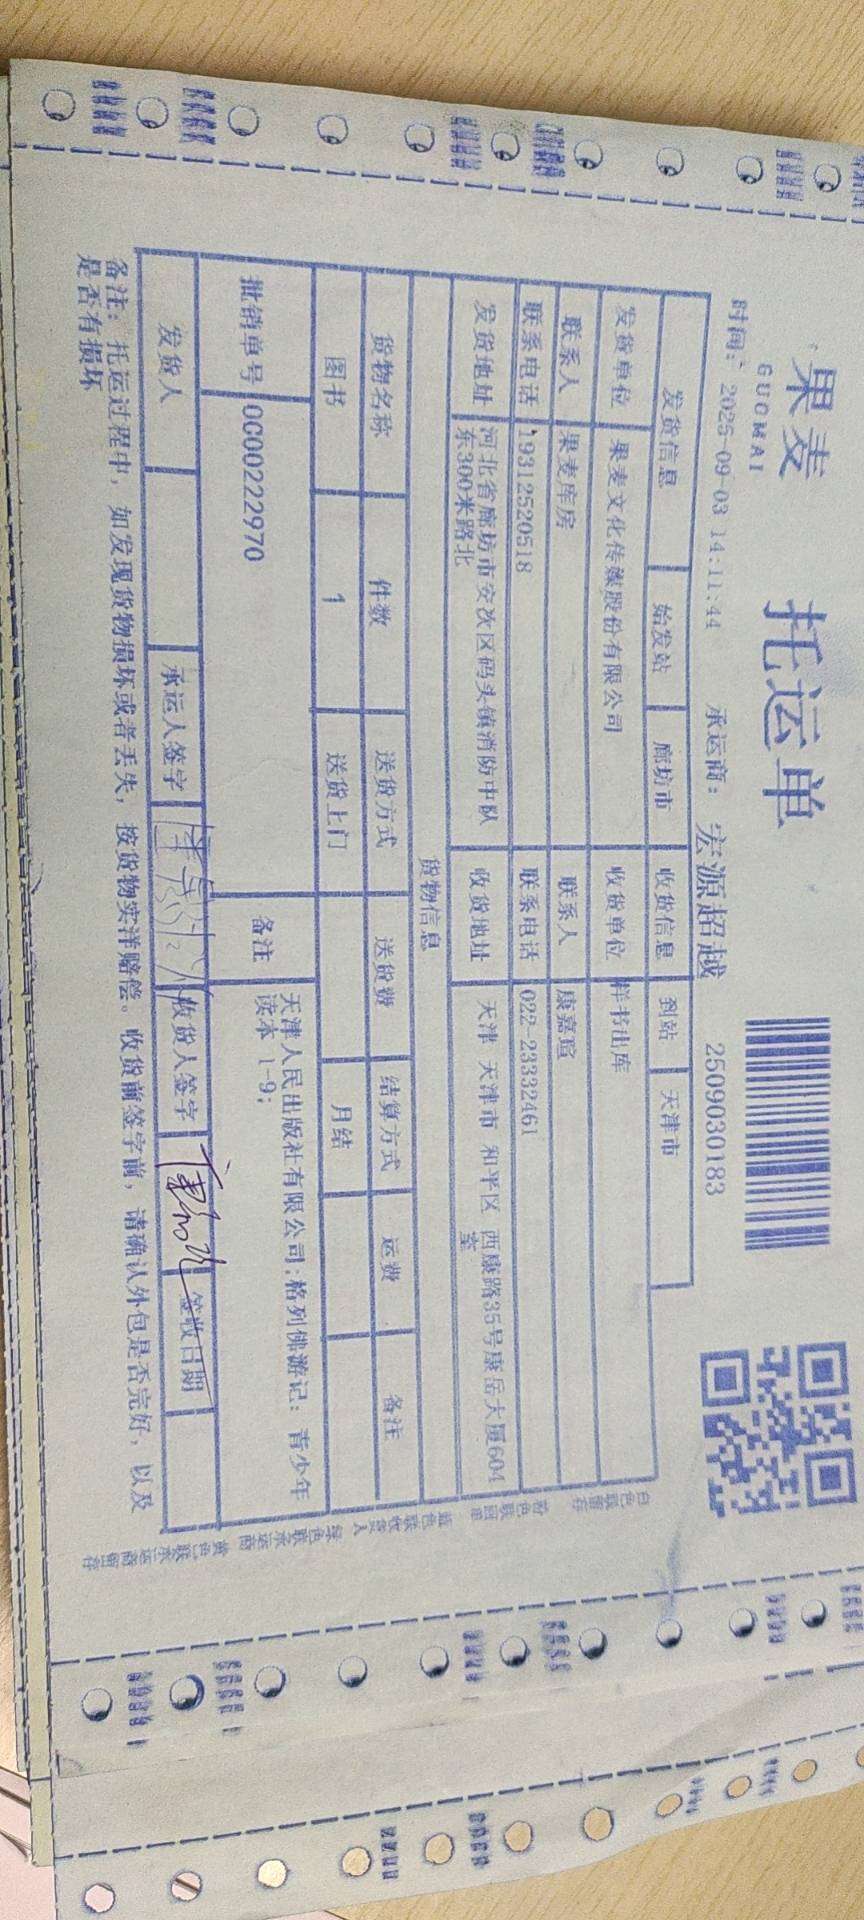 果麦
GUOMAI
托运单
时间: 2025-09-03 14:11:44 承运商: 宏源超越 2509030183
发货信息 始发站 廊坊市 收货信息 到站 天津市
发货单位 果麦文化传媒股份有限公司 收货单位 样书出库
联系人 果麦库房 联系人 康嘉瑄
联系电话 19312520518 联系电话 022-23332461
发货地址 河北省廊坊市安次区码头镇消防中队
东300米路北 收货地址 天津 天津市 和平区 西康路35号康岳大厦604
室
货物信息
货物名称 件数 送货方式 送货费 结算方式 运费 备注
图书 1 送货上门 月结
批销单号 0000222970 备注 天津人民出版社有限公司:格列佛游记: 青少年
读本 1-9;
发货人 承运人签字 收货人签字 签收日期
备注: 托运过程中, 如发现货物损坏或者丢失, 按货物实洋赔偿。收货前签字前, 请确认外包是否完好, 以及
是否有损坏
白色联留存
蓝色联收货人
绿色联承运商
黄色联承运商留存